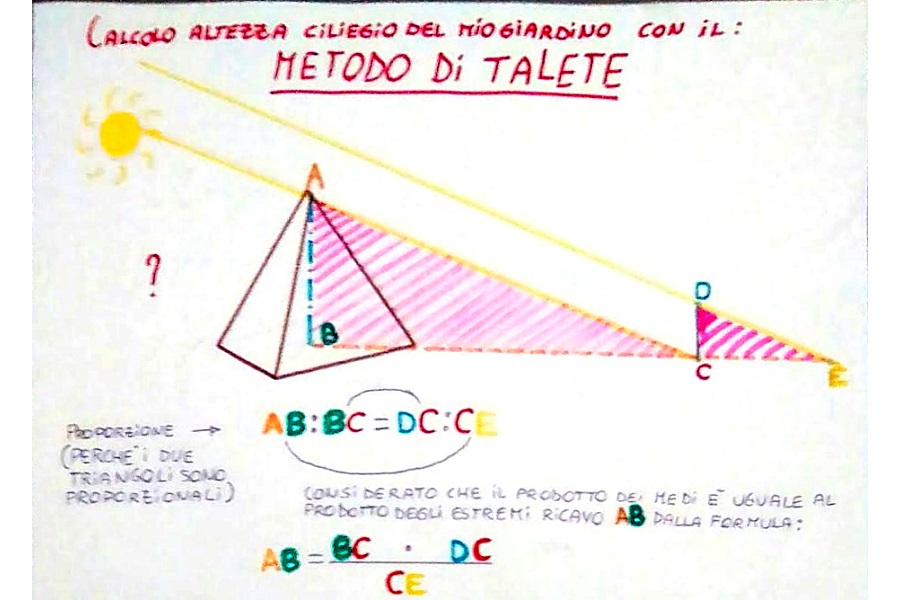 CALCOLO ALTEZZA CILIEGIO DEL MIO GIARDINO CON IL:
METODO Di TALETE
A
?
B
D
C
E
PROPORZIONE →
(PERCHE' i DUE
TRIANGOLI SONO
PROPORZIONALI)
AB:BC = DC:CE
CONSIDERATO CHE IL PRODOTTO DEI MEDI E' UGUALE AL
PRODOTTO DEGLI ESTREMI RICAVO AB DALLA FORMULA:
AB = BC · DC
CE